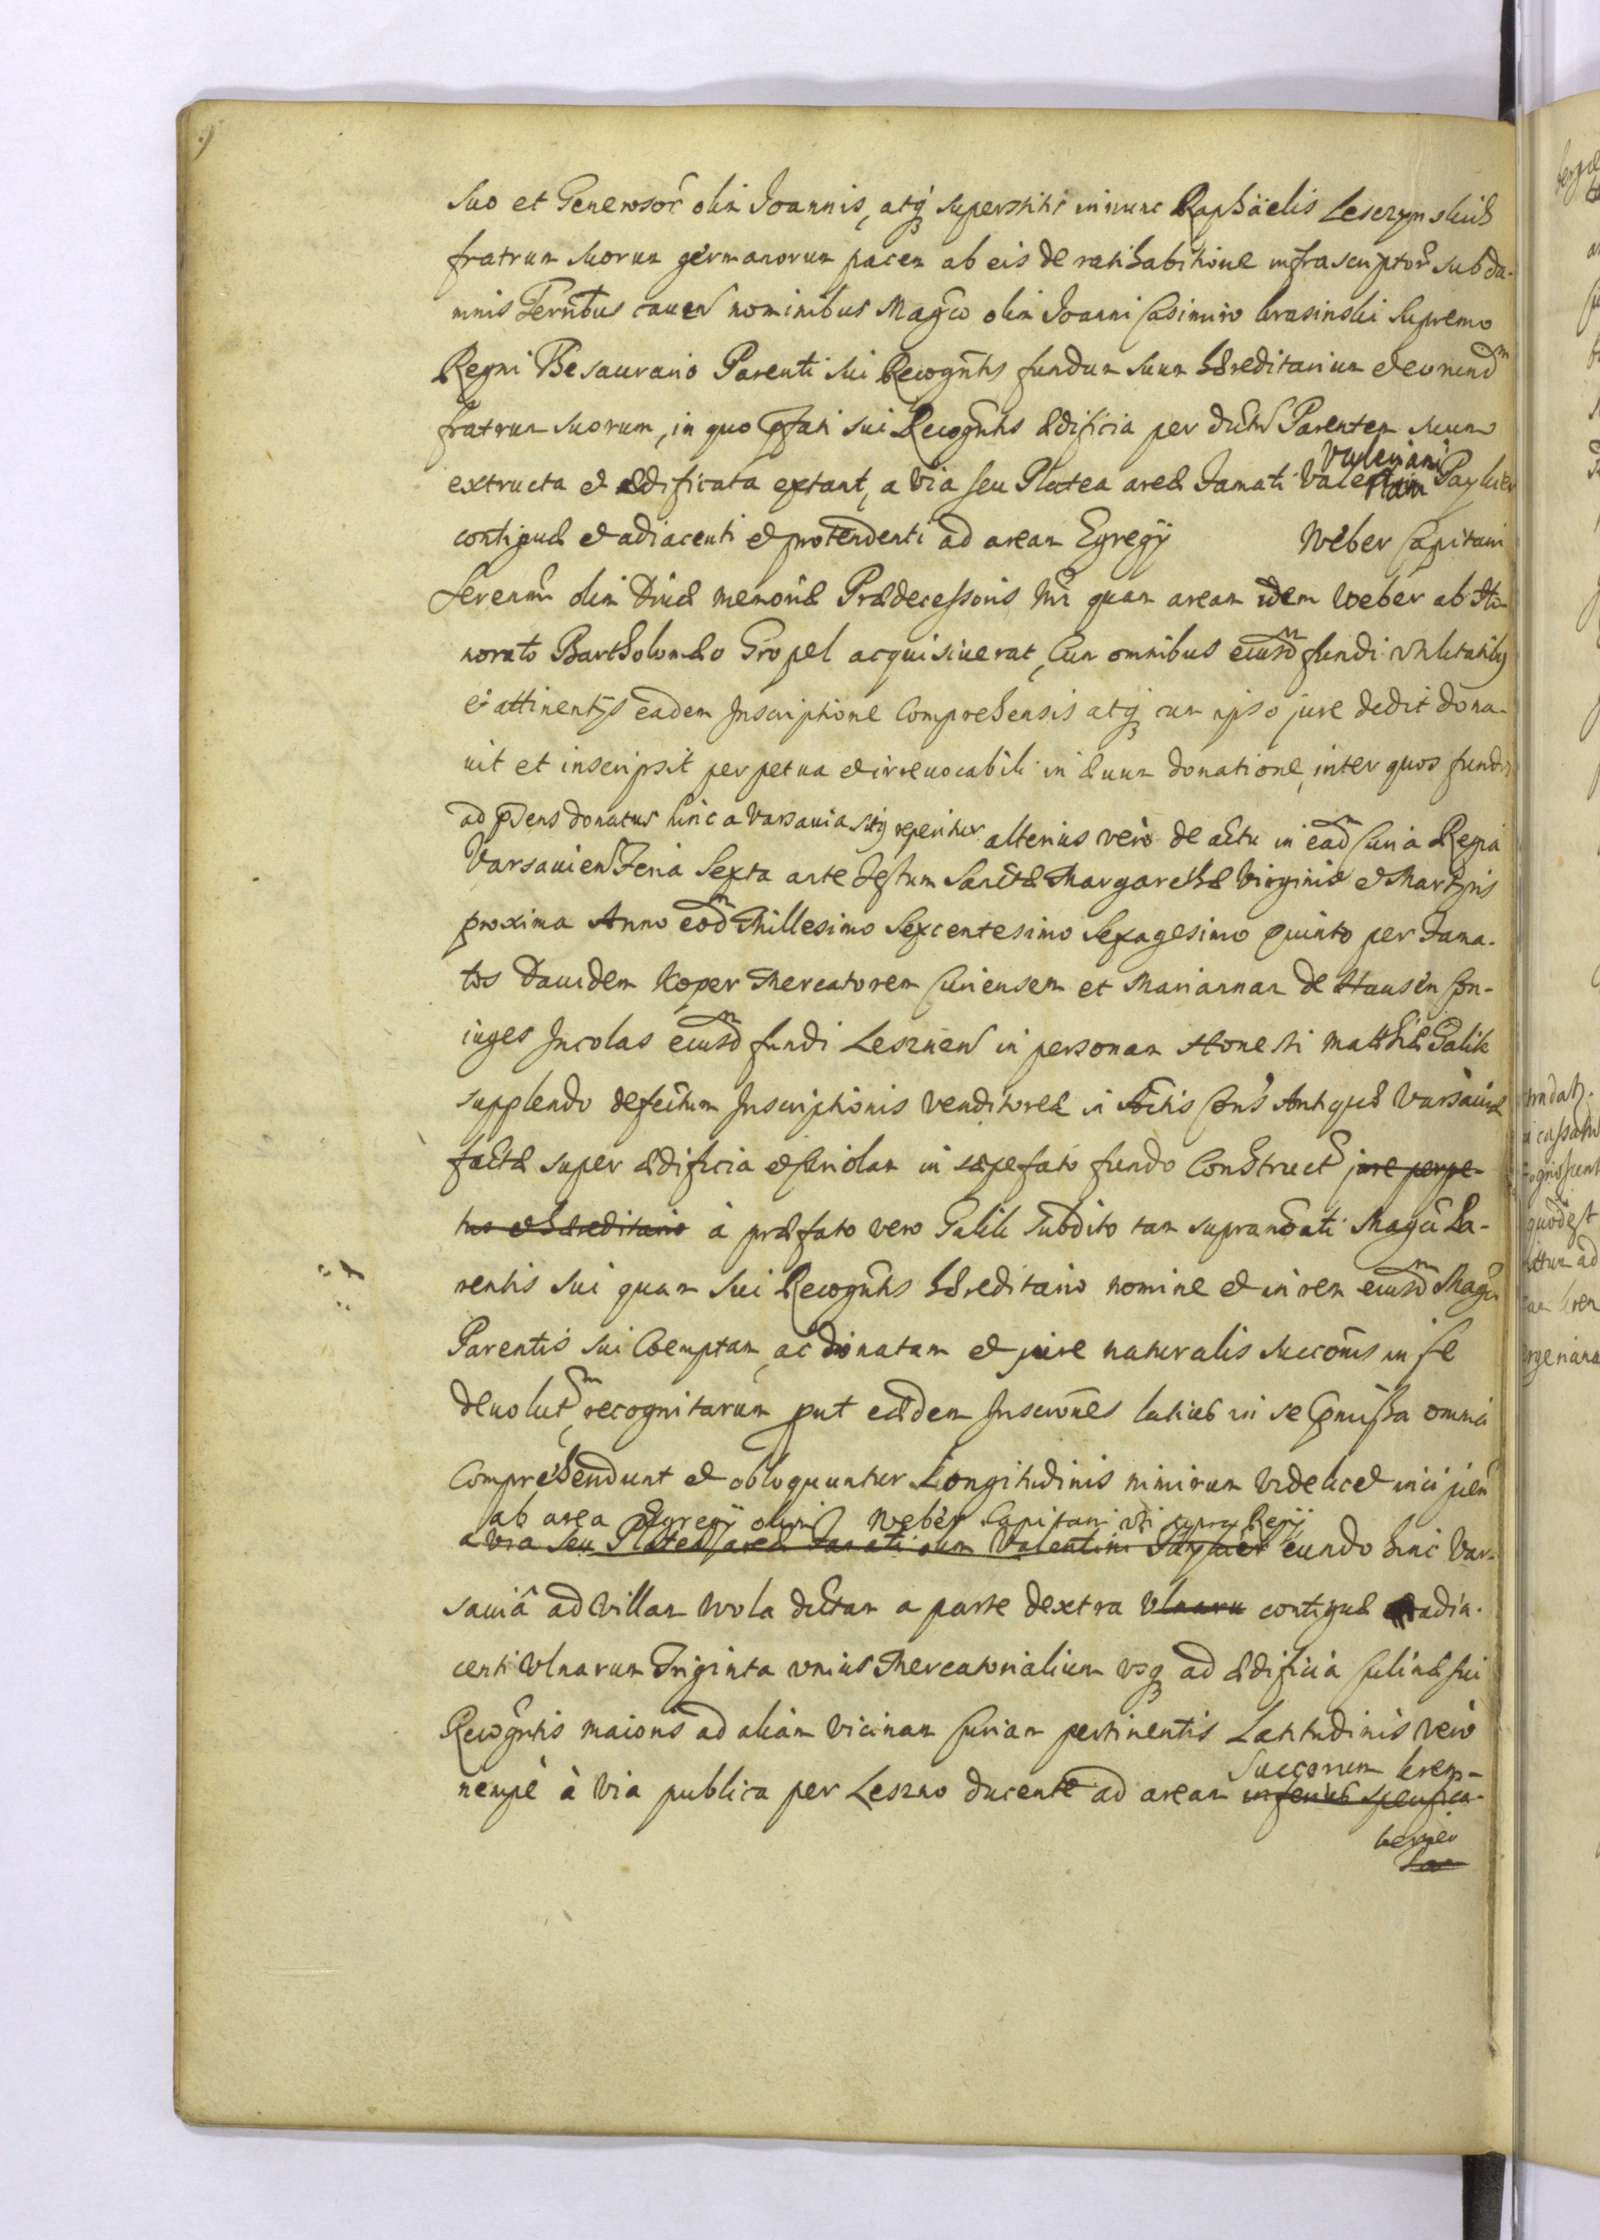 suo et Generosor̃ olim Joannis, atq̃ superstitis in nunc Raphäelis Leszczynskich
fratrum suorum germanorum pacem ab eis de ratihabitione infrascriptor̃ sub da-
mnis Terrñbus cauen nominibus Magco olim Joanni Casimiro Krasinski Supremo
Regni Thesaurario Parenti sui Recogñtis fundum suum hæreditarium et eorundm
fratrum suorum, in quo pfati sui Recogñtis ædificia per dictũ Parentem suum
extructa et ædificata extant, a via seu Platea areæ Famati Valentini Valeriani Paykier
contiguæ et adiacenti et protendenti ad aream Egregÿ Weber Capitani
Serenmi olim Diuæ memoriæ Prædecessoris Nri quam aream idem Weber ab Ho-
norato Bartholomæo Gropel acquisiuerat, Cum omnibus eiusdm fundi vtilitatibq
et attinentÿs eadem Inscriptione Comprehensis atq̃ cum ipso jure dedit dona-
uit et inscripsit perpetua et irreuocabili in æuum donatione, inter quos fundus
ad p̃sens donatus hinc a Varsauia situs reperitur alterius verò de actu in eadm Curia Regia
Varsauien Feria Sexta ante Festum Sanctæ Margarethæ Virginis et Martyris
proxima Anno eodm Millesimo Sexcentesimo Sexagesimo Quinto per Fama-
tos Dauidem Koper Mercatorem Curiensem et Mariannam de Hausen Con-
iuges Incolas eiusdm fundi Lesznen in personam Honesti Matthiæ Galik
supplendo defectum Inscriptionis venditoreæ in Actis Cons Antiquæ Varsauiæ
factæ super ædificia et Curiolam in sæpefato fundo Construct jure perpe-
tuo et hæreditario à præfato vero Galik Subdito tam supranõati Magci Pa-
rentis sui quam sui Recogñtis hæreditario nomine et in rem eiusdm Magci
Parentis sui Coemptam ac donatam et jure naturalis succõnis in se
deuolutm, recognitarum put eædem Inscrõnes latius in se p̃missa omnia
Comprehendunt et obloquuntur Longitudinis nimirum videlicet incipien
ab area Egregÿ olim Weber Capitani vti supra Regÿ
a via seu Platea areæ Famati olim Valentini Paykier eundo hinc Var-
sauiâ ad Villam Wola dictam a parte dextra vlnaru contiguæ adia-
centi vlnarum Triginta vnius Mercatorialium vsq̃ ad ædificia Culinæ sui
Recogñtis maioris ad aliam vicinam Curiam pertinentis Latitudinis verò
nempè à via publica per Leszno ducente ad aream inferius specifica- Succorum krem-
berger
tam